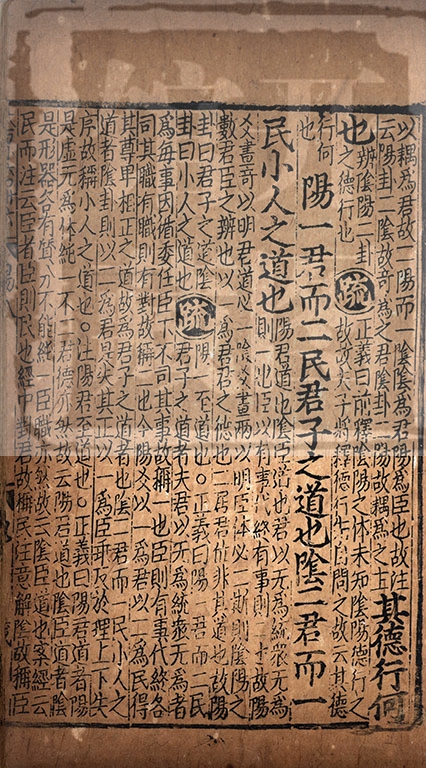 以耦為君故一陽而一陰陰為君陽為臣也故注
云陽卦二陰故奇為之君陰卦二陽故耦為之主
其德行何
也
辨陰陽二卦
之德行也
疏
正義曰前釋陰陽之体未知陰陽德行之
故故夫子將釋德行先自問之故云其德
行何
也
陽一君而二民君子之道也陰二君而一
民小人之道也
陽君道也陰臣道也君以无為統眾无為
則一也臣以有事代終有事則二也故陽
爻畫奇以明君道必一陰爻畫兩以明臣体必二斯則陰陽之
數君臣之辨也以一為君君之德也二居君位非其道也故陽
卦曰君子之道陰
卦曰小人之道也
疏
陽一至道也○正義曰陽一君而二民
君子之道者夫君以无為統眾无為者
為每事因循委任臣下不司其事故稱一也臣則有事代終各
司其職有職則有對故稱二也今陽爻以一為君以二為民得
其尊卑相正之道故為君子之道者也陰二君而一民小人之
道者陰卦則以二為君是失其正以一為臣乖反於理上下失
序故稱小人之道也○注陽君至道也○正義曰陽君道者陽
是虛无為体純一不二君德亦然故云陽君道也陰臣道者陰
是形器各有質分不能純一臣職亦然故云陰臣道也案經云
民而注云臣者臣則民也經中對君故稱民注意解陰故稱臣